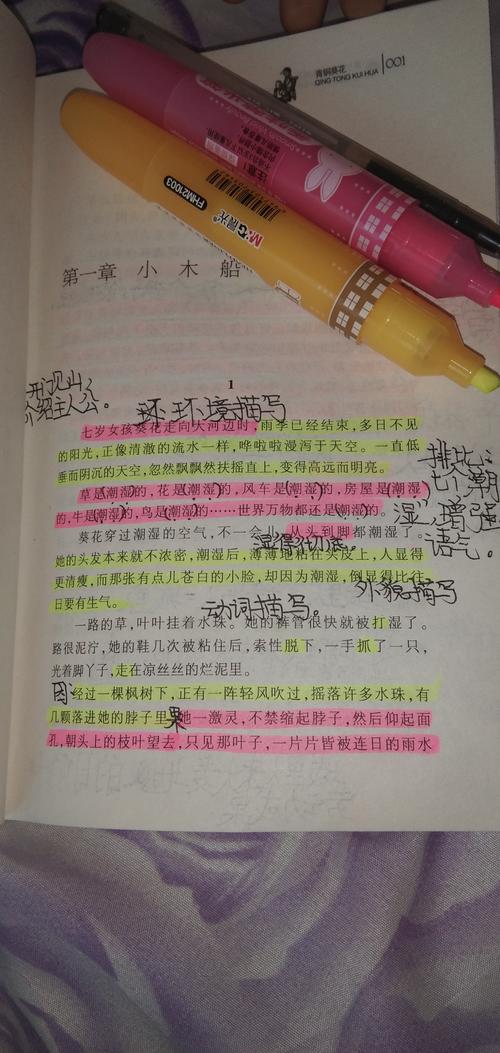 青铜葵花
QING TONG KUI HUA
001
FHM21003
M&G晨光
第一章 小木船
1
开门见山,
介绍主人公。
环境描写
七岁女孩葵花走向大河边时,雨季已经结束,多日不见
的阳光,正像清澈的流水一样,哗啦啦漫泻于天空。一直低
垂而阴沉的天空,忽然飘飘然扶摇直上,变得高远而明亮。
排比:
七个“潮
湿”,增强
语气。
草是潮湿的,花是潮湿的,风车是潮湿的,房屋是潮湿
的,牛是潮湿的,鸟是潮湿的……世界万物都还是潮湿的。
葵花穿过潮湿的空气,不一会儿,从头到脚都潮湿了。
她的头发本来就不浓密,潮湿后,薄薄地粘在头皮上,人显得
更清瘦,而那张有点儿苍白的小脸,却因为潮湿,倒显得比往
日要有生气。
外貌描写
动词描写。
一路的草,叶叶挂着水珠。她的裤管很快就被打湿了。
路很泥泞,她的鞋几次被粘住后,索性脱下,一手抓了一只,
光着脚丫子,走在凉丝丝的烂泥里。
因
经过一棵枫树下,正有一阵轻风吹过,摇落许多水珠,有
几颗落进她的脖子里,她一激灵,不禁缩起脖子,然后仰起面
果
孔,朝头上的枝叶望去,只见那叶子,一片片皆被连日的雨水